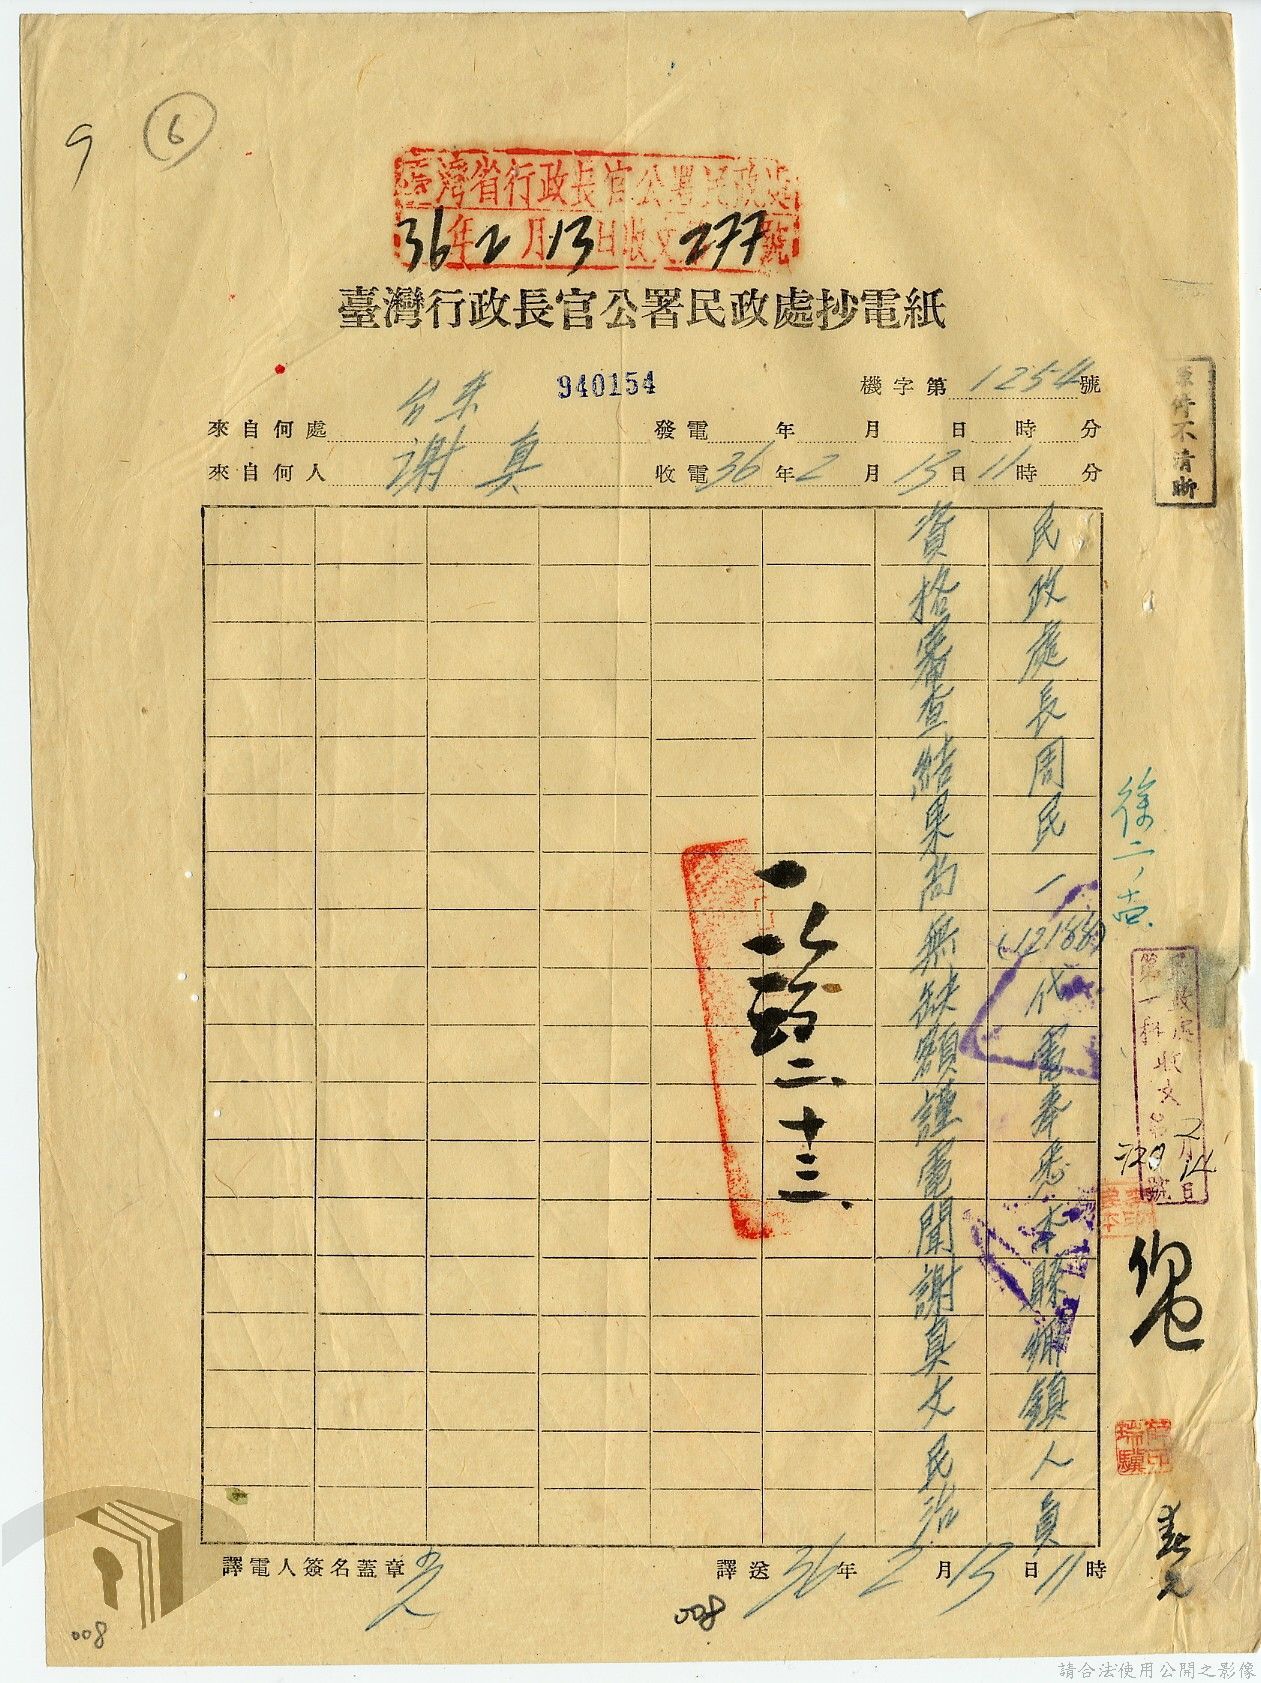 9
6
臺灣省行政長官公署民政處
36年2月13日收文 277號
臺灣行政長官公署民政處抄電紙
940154
機字第1254號
來自何處 台東
發電 年 月 日 時 分
來自何人 謝真
收電36年2月13日11時 分
原件不清晰
民政處長周民一(12188)代電奉悉本縣鄉鎮人員
資格審查結果尚無缺額謹電聞謝真文民治
二、十三、
徐二、
民政處
第一科收文
2月14日
號
譯電人簽名蓋章
譯送36年2月13日11時
008
008
請合法使用公開之影像